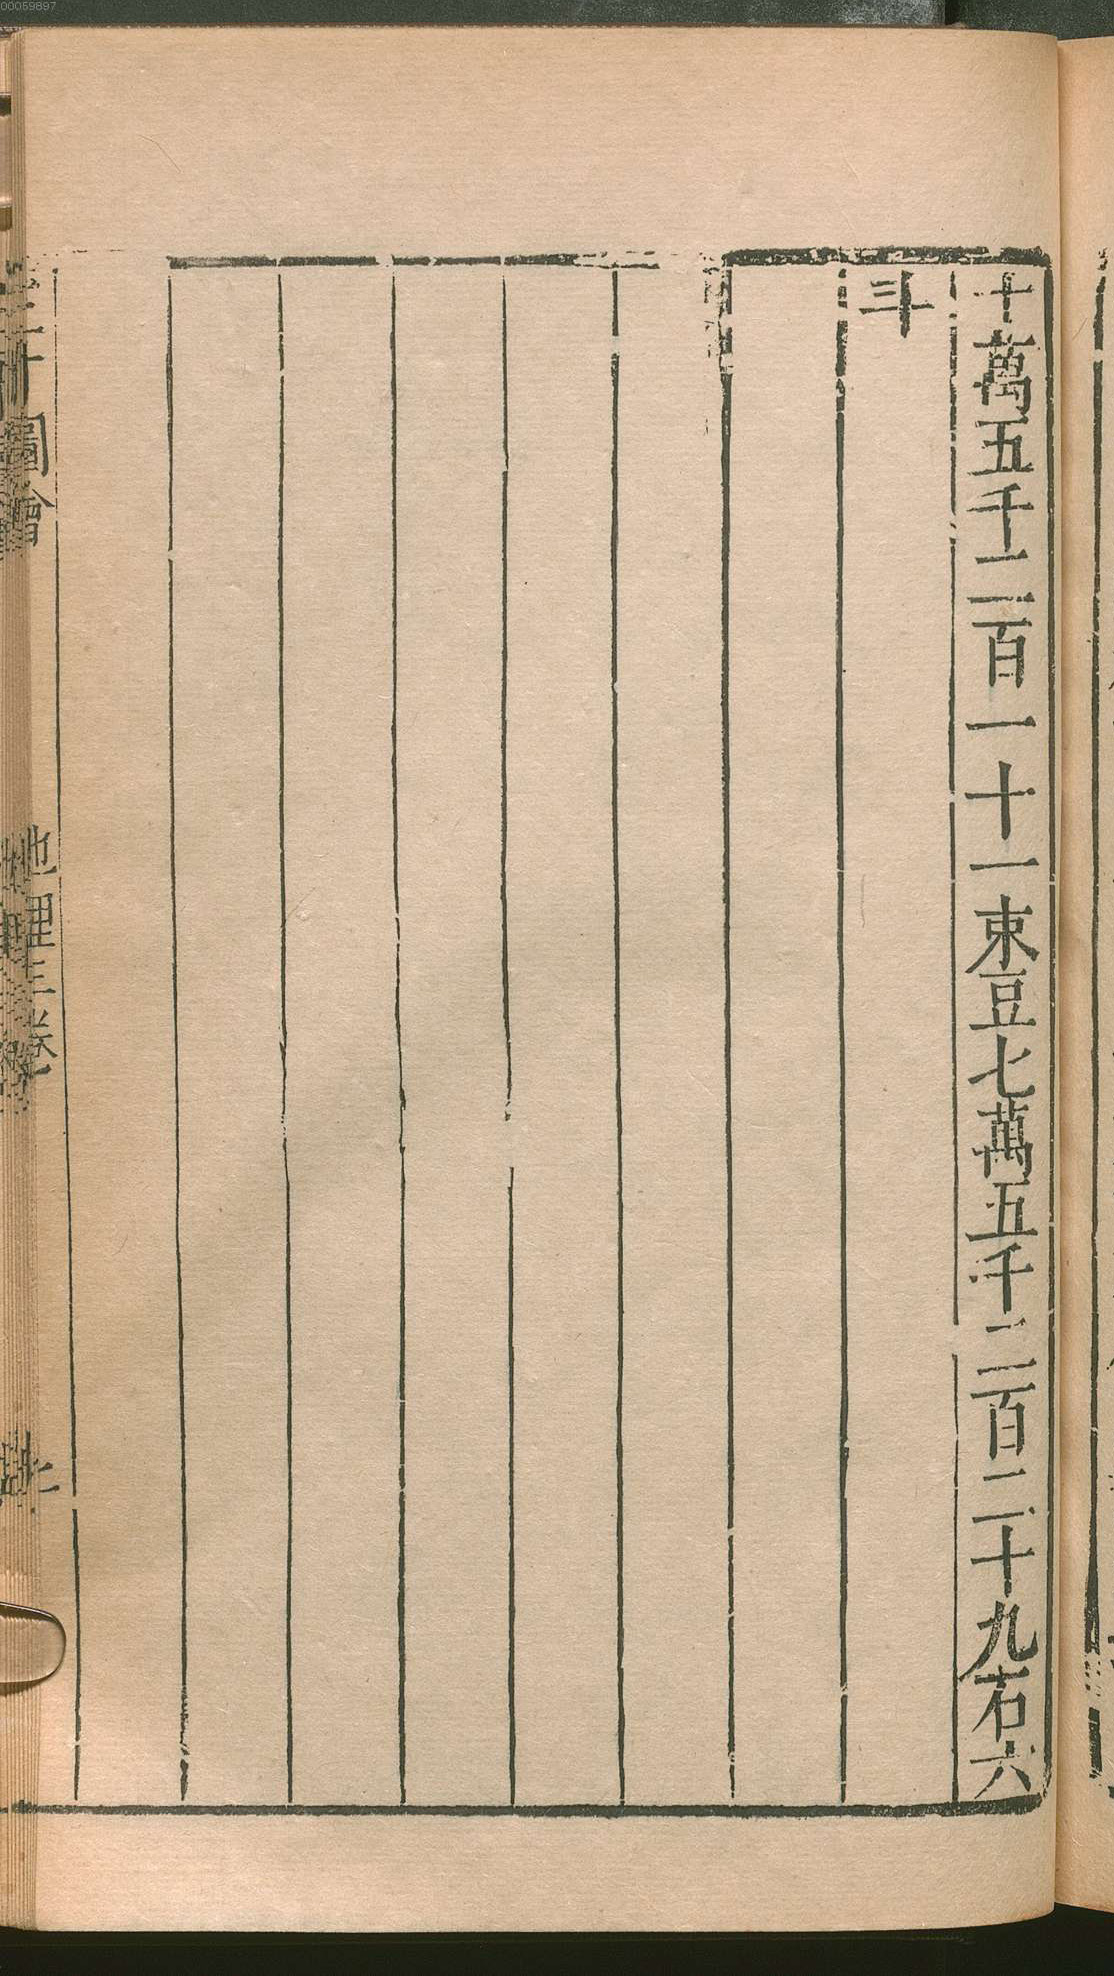 十萬五千二百一十一束豆七萬五千二百二十九石六
斗
圖會
地理三卷
00059897